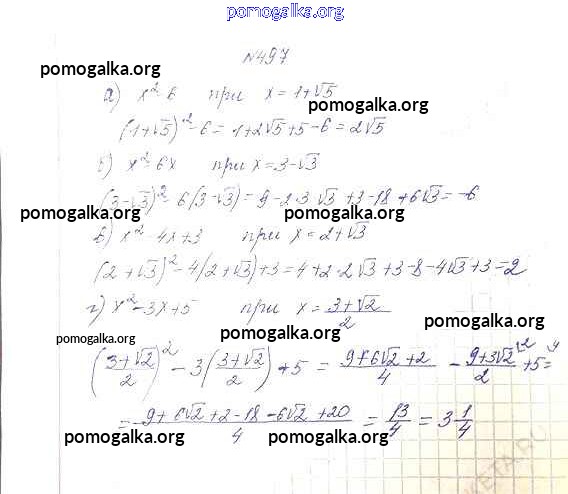 pomogalka.org
№497
pomogalka.org pomogalka.org
а) x² - 6 при x = 1+√5
(1+√5)² - 6 = 1+2√5+5-6 = 2√5
б) x² - 6x при x = 3-√3
(3-√3)² - 6(3-√3) = 9-2·3√3+3-18+6√3 = -6
pomogalka.org pomogalka.org
в) x² - 4x+3 при x = 2+√3
(2+√3)² - 4(2+√3)+3 = 4+2·2√3+3-8-4√3+3 = 2
г) x² - 3x+5 при x = (3+√2)/2
pomogalka.org
pomogalka.org pomogalka.org
((3+√2)/2)² - 3((3+√2)/2) + 5 = (9+6√2+2)/4 - (9+3√2)/2 \2 + 5 \4 =
= (9+6√2+2-18-6√2+20)/4 = 13/4 = 3 1/4
pomogalka.org pomogalka.org pomogalka.org